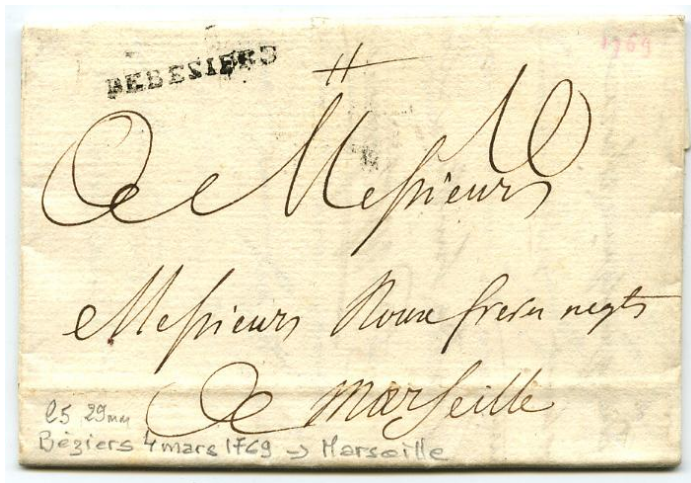 1769
DEBESIERS
A Messieurs
Messieurs Roux freres negts
A Marseille
L5 29mm
Béziers 4 mars 1769 → Marseille